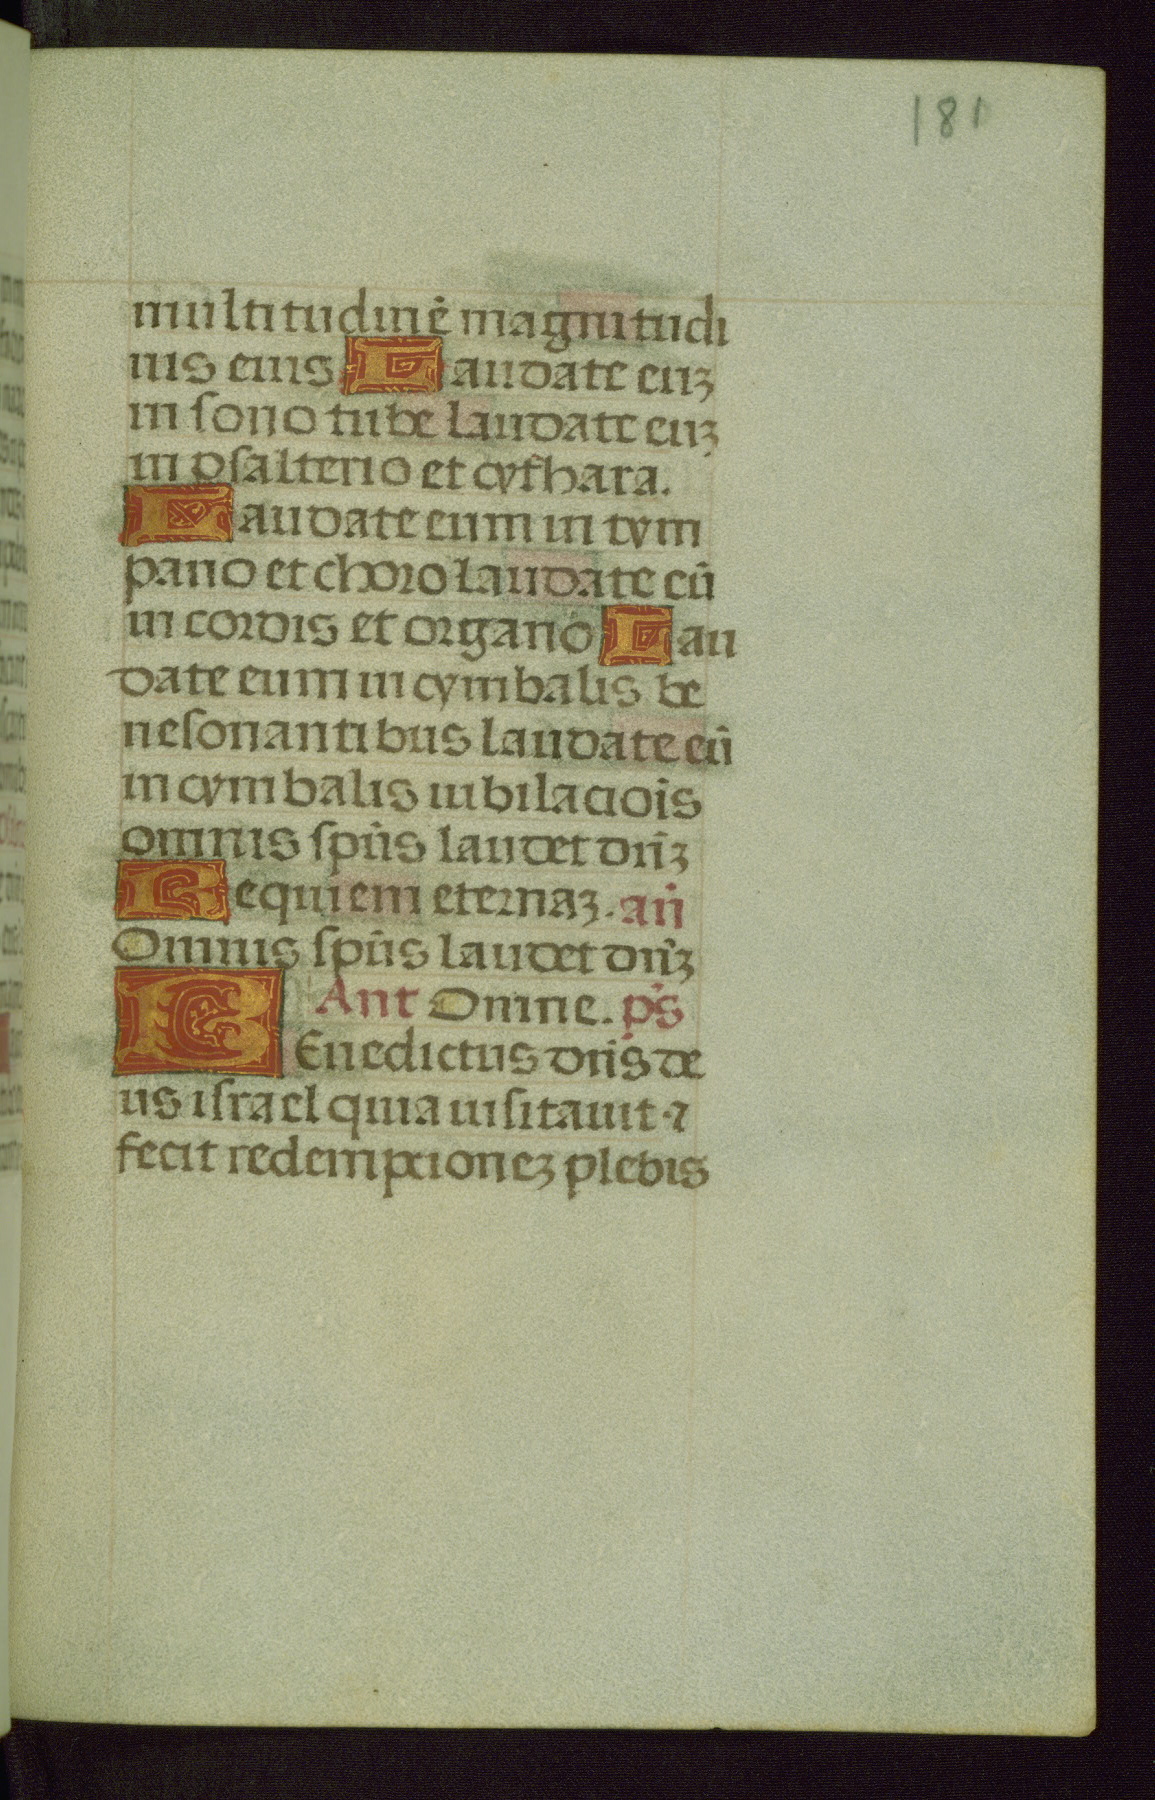 181
multitudinē magnitudi
nis eius Laudate euꝫ
in sono tube laudate euꝫ
in psalterio et cythara.
Laudate eum in tym
pano et choro laudate eū
in cordis et organo Lau
date eum in cymbalis be
nesonantibus laudate eū
in cymbalis iubilaciois̄
omnis spūs laudet dnꝫ̄
Requiem eternaꝫ. an̄
Omnis spūs laudet dnꝫ̄
Ant Omne. ps̄
BEnedictus dn̄s de
us israel quia uisitauit ⁊
fecit redempcioneꝫ plebis